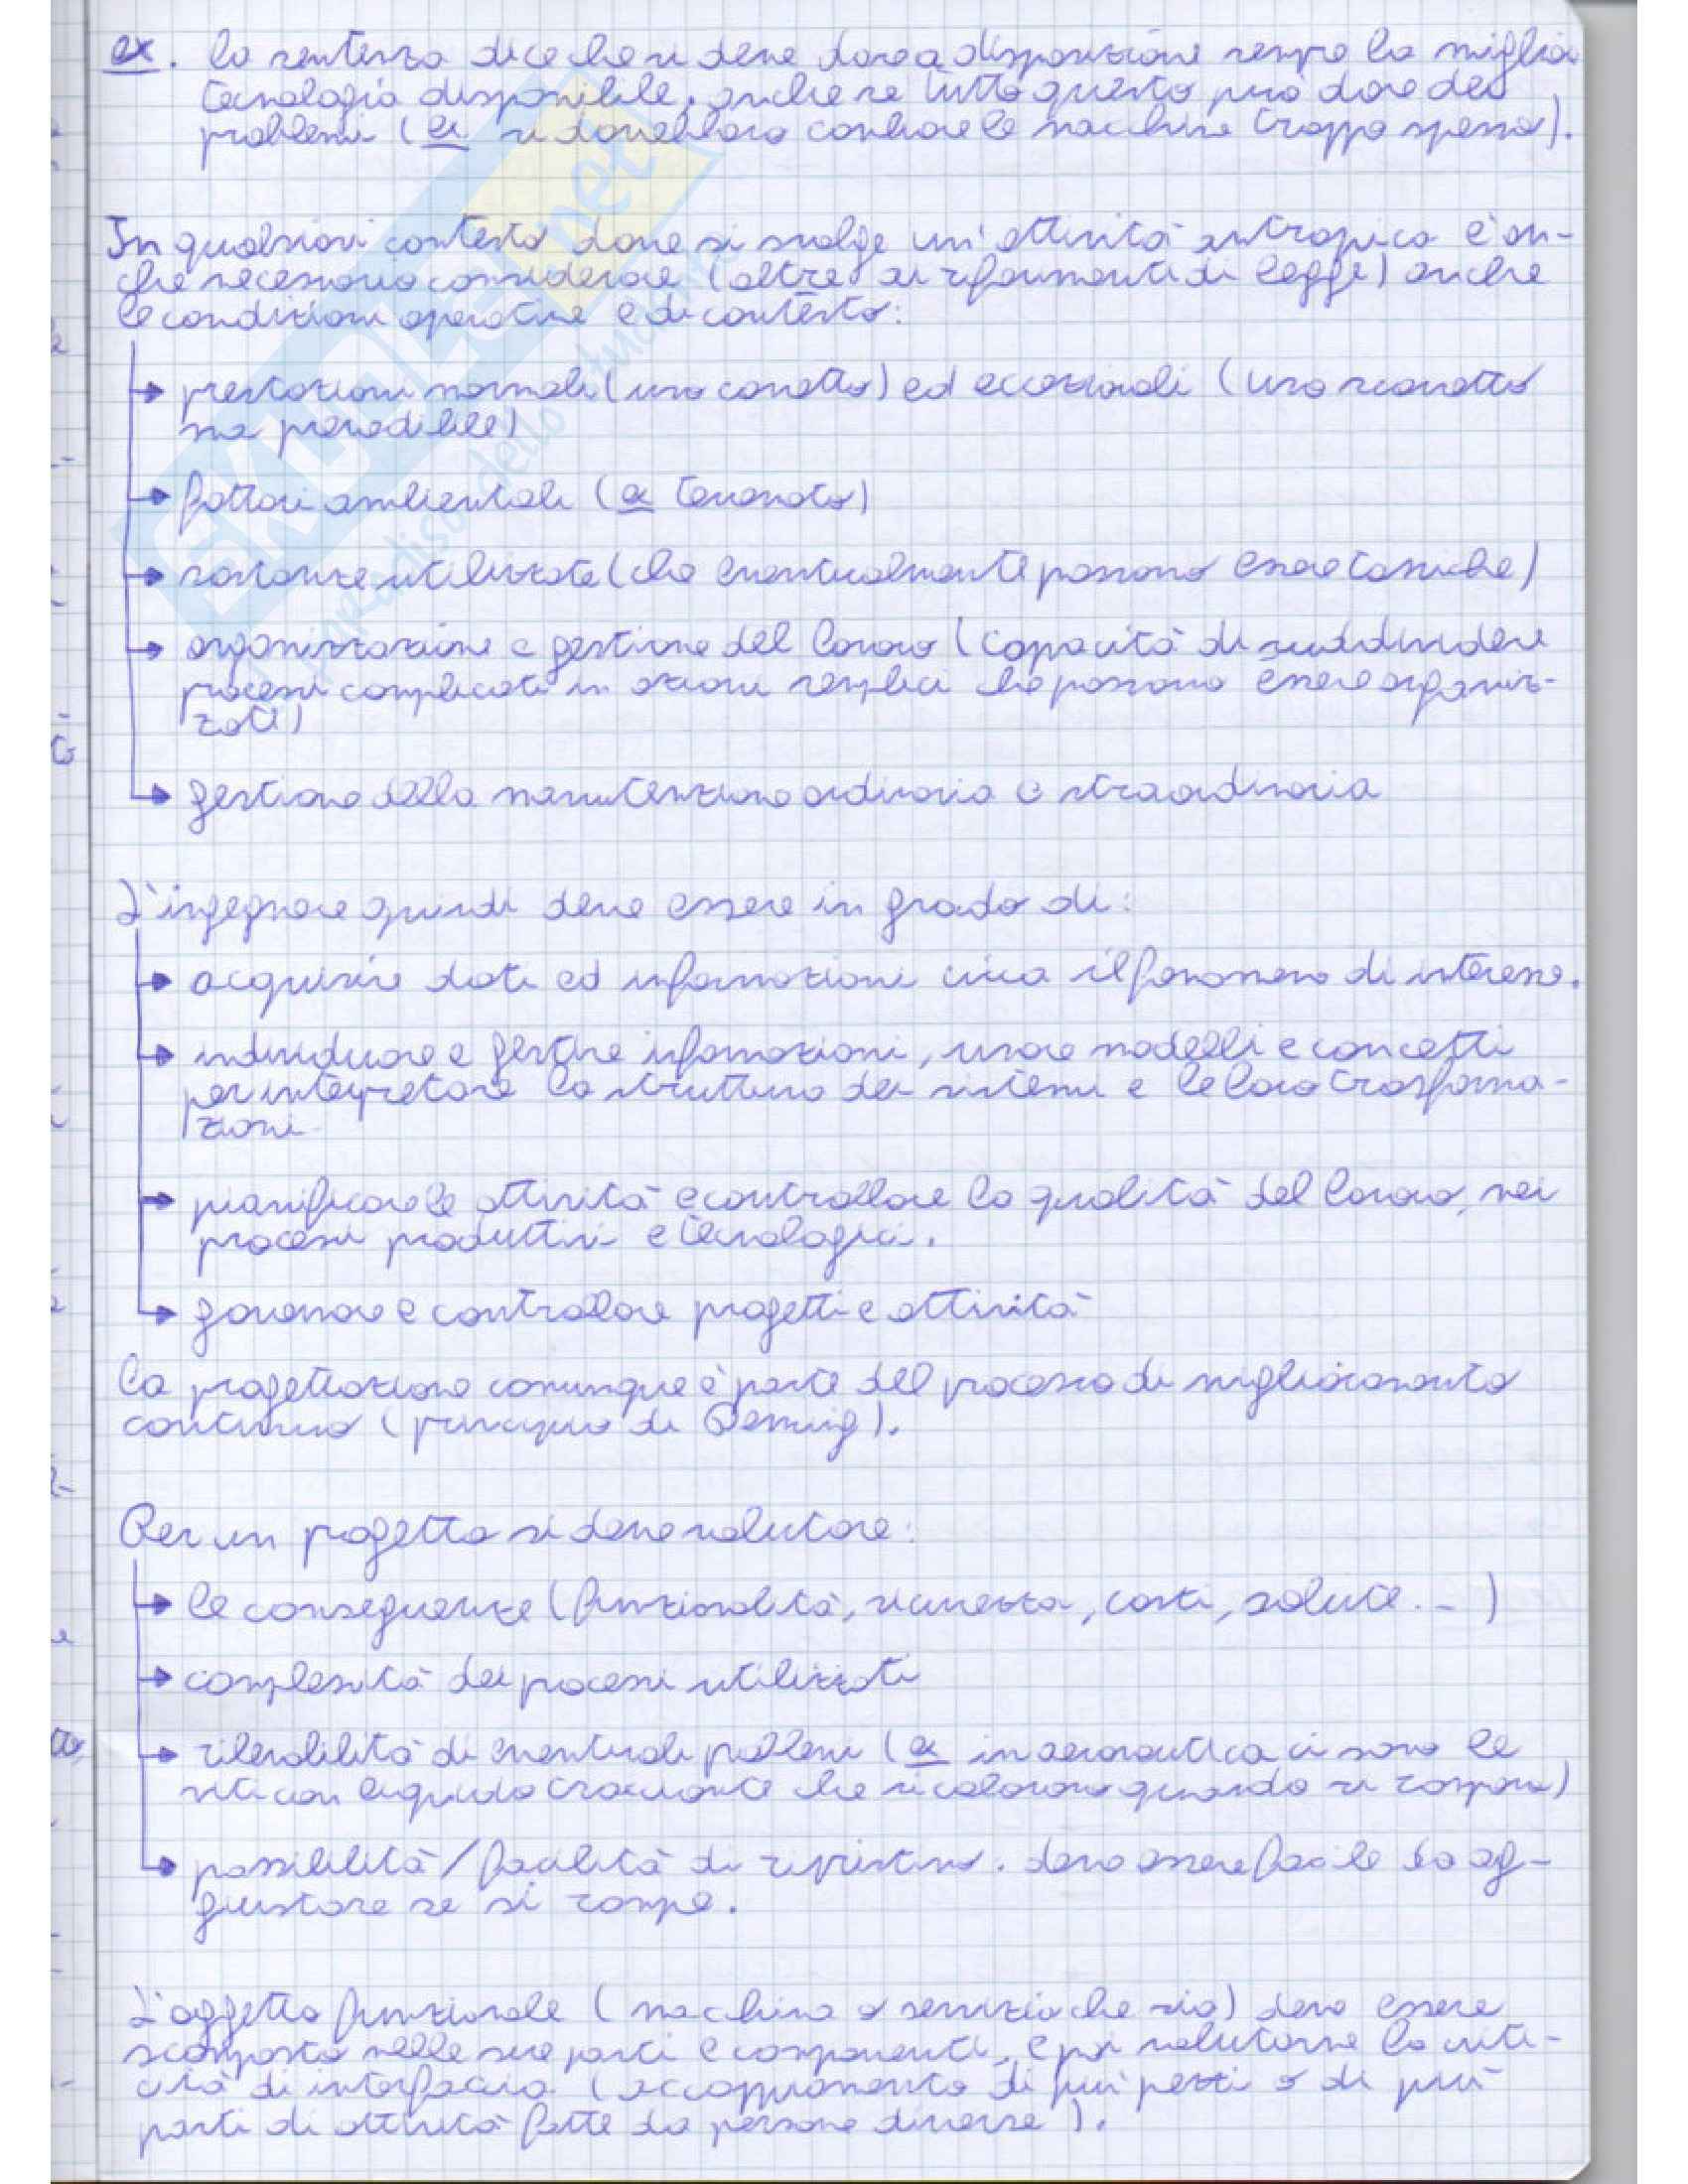 ex. la sentenza dice che si deve dare a disposizione sempre la miglior
tecnologia disponibile, anche se tutto questo può dare dei
problemi (ex si dovrebbero cambiare le macchine troppo spesso).
In qualsiasi contesto dove si svolge un'attività antropica è an-
che necessario considerare (oltre ai riferimenti di legge) anche
le condizioni operative e di contesto:
→ prestazioni normali (uso corretto) ed eccezionali (uso scorretto
ma prevedibile)
→ fattori ambientali (ex terremoto)
→ sostanze utilizzate (che eventualmente possono essere tossiche)
→ organizzazione e gestione del lavoro (capacità di suddividere
processi complicati in azioni semplici che possono essere organiz-
zati)
→ gestione della manutenzione ordinaria e straordinaria
L'ingegnere quindi deve essere in grado di:
→ acquisire dati ed informazioni circa il fenomeno di interesse.
→ individuare e gestire informazioni, usare modelli e concetti
per interpretare la struttura dei sistemi e le loro trasforma-
zioni
→ pianificare le attività e controllare la qualità del lavoro, nei
processi produttivi e tecnologici.
→ governare e controllare progetti e attività
La progettazione comunque è parte del processo di miglioramento
continuo (principio di Deming).
Per un progetto si deve valutare:
→ le conseguenze (funzionalità, sicurezza, costi, salute...)
→ complessità dei processi utilizzati
→ rilevabilità di eventuali problemi (ex in aeronautica ci sono le
viti con liquido tracciante che si colorano quando si rompono)
→ possibilità/facilità di ripristino. deve essere facile da ag-
giustare se si rompe.
L'oggetto funzionale (macchina o servizio che sia) deve essere
scomposto nelle sue parti e componenti, e poi valutarne la criti-
cità di interfaccia (accoppiamento di più pezzi o di più
parti di attività fatte da persone diverse).